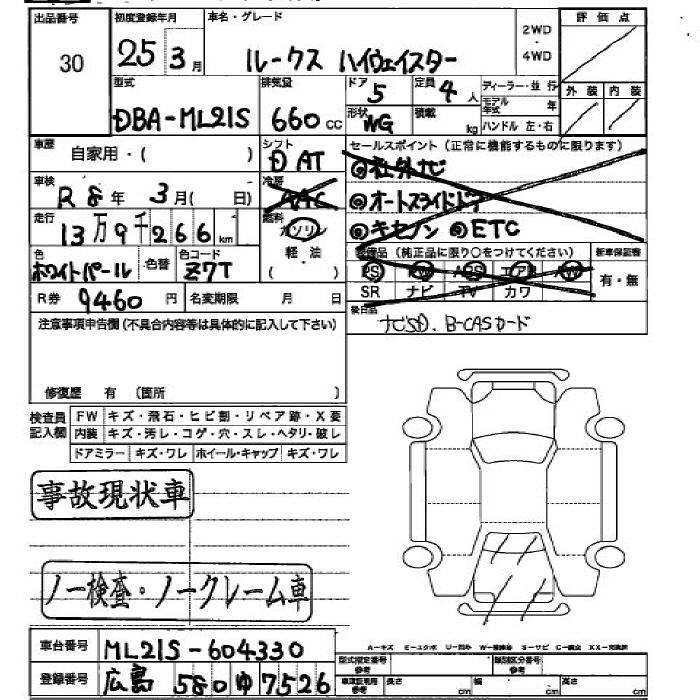 出品番号
30
初度登録年月
25 3月
車名・グレード
ルークス ハイウェイスター
2WD
・
4WD
評価点
外装 内装
型式
DBA-ML21S
排気量
660 cc
ドア
5
定員
4人
形状
WG
積載
kg
ディーラー・並行
モデル年式 年
ハンドル 左・右
車歴
自家用・( )
シフト
D AT
車検
R8年 3月( 日)
冷房
AAC
走行
13万9千266km
燃料
ガソリン
軽・油
( )
色
ホワイトパール
色替
色コード
Z7T
R券 9460 円
名変期限 月 日
セールスポイント(正常に機能するものに限ります)
◎社外ナビ
◎オートスライドドア
◎キセノン ◎ETC
装備品(純正品に限り○をつけてください)
新車保証書
PS PW ABS エアB AW
SR ナビ TV カワ
有・無
後日品
ナビSD、B-CASカード
注意事項申告欄(不具合内容等は具体的に記入して下さい)
修復歴 有 (箇所 )
検査員記入欄
FW キズ・飛石・ヒビ割・リペア跡・X要
内装 キズ・汚レ・コゲ・穴・スレ・ヘタリ・破レ
ドアミラー キズ・ワレ ホイール・キャップ キズ・ワレ
事故現状車
ノー検査・ノークレーム車
車台番号 ML21S-604330
登録番号 広島 580 ゆ 7526
A-キズ E-エクボ U-凹み
型式指定番号 参考
類別区分番号 参考
車庫証明用 参考
長さ cm 幅 cm 高さ cm